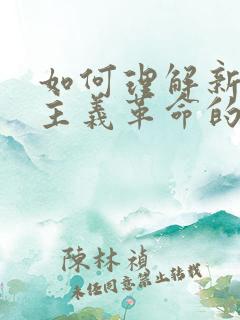 如何理解新
主義革命的
陳林禎
未经同意禁止转载